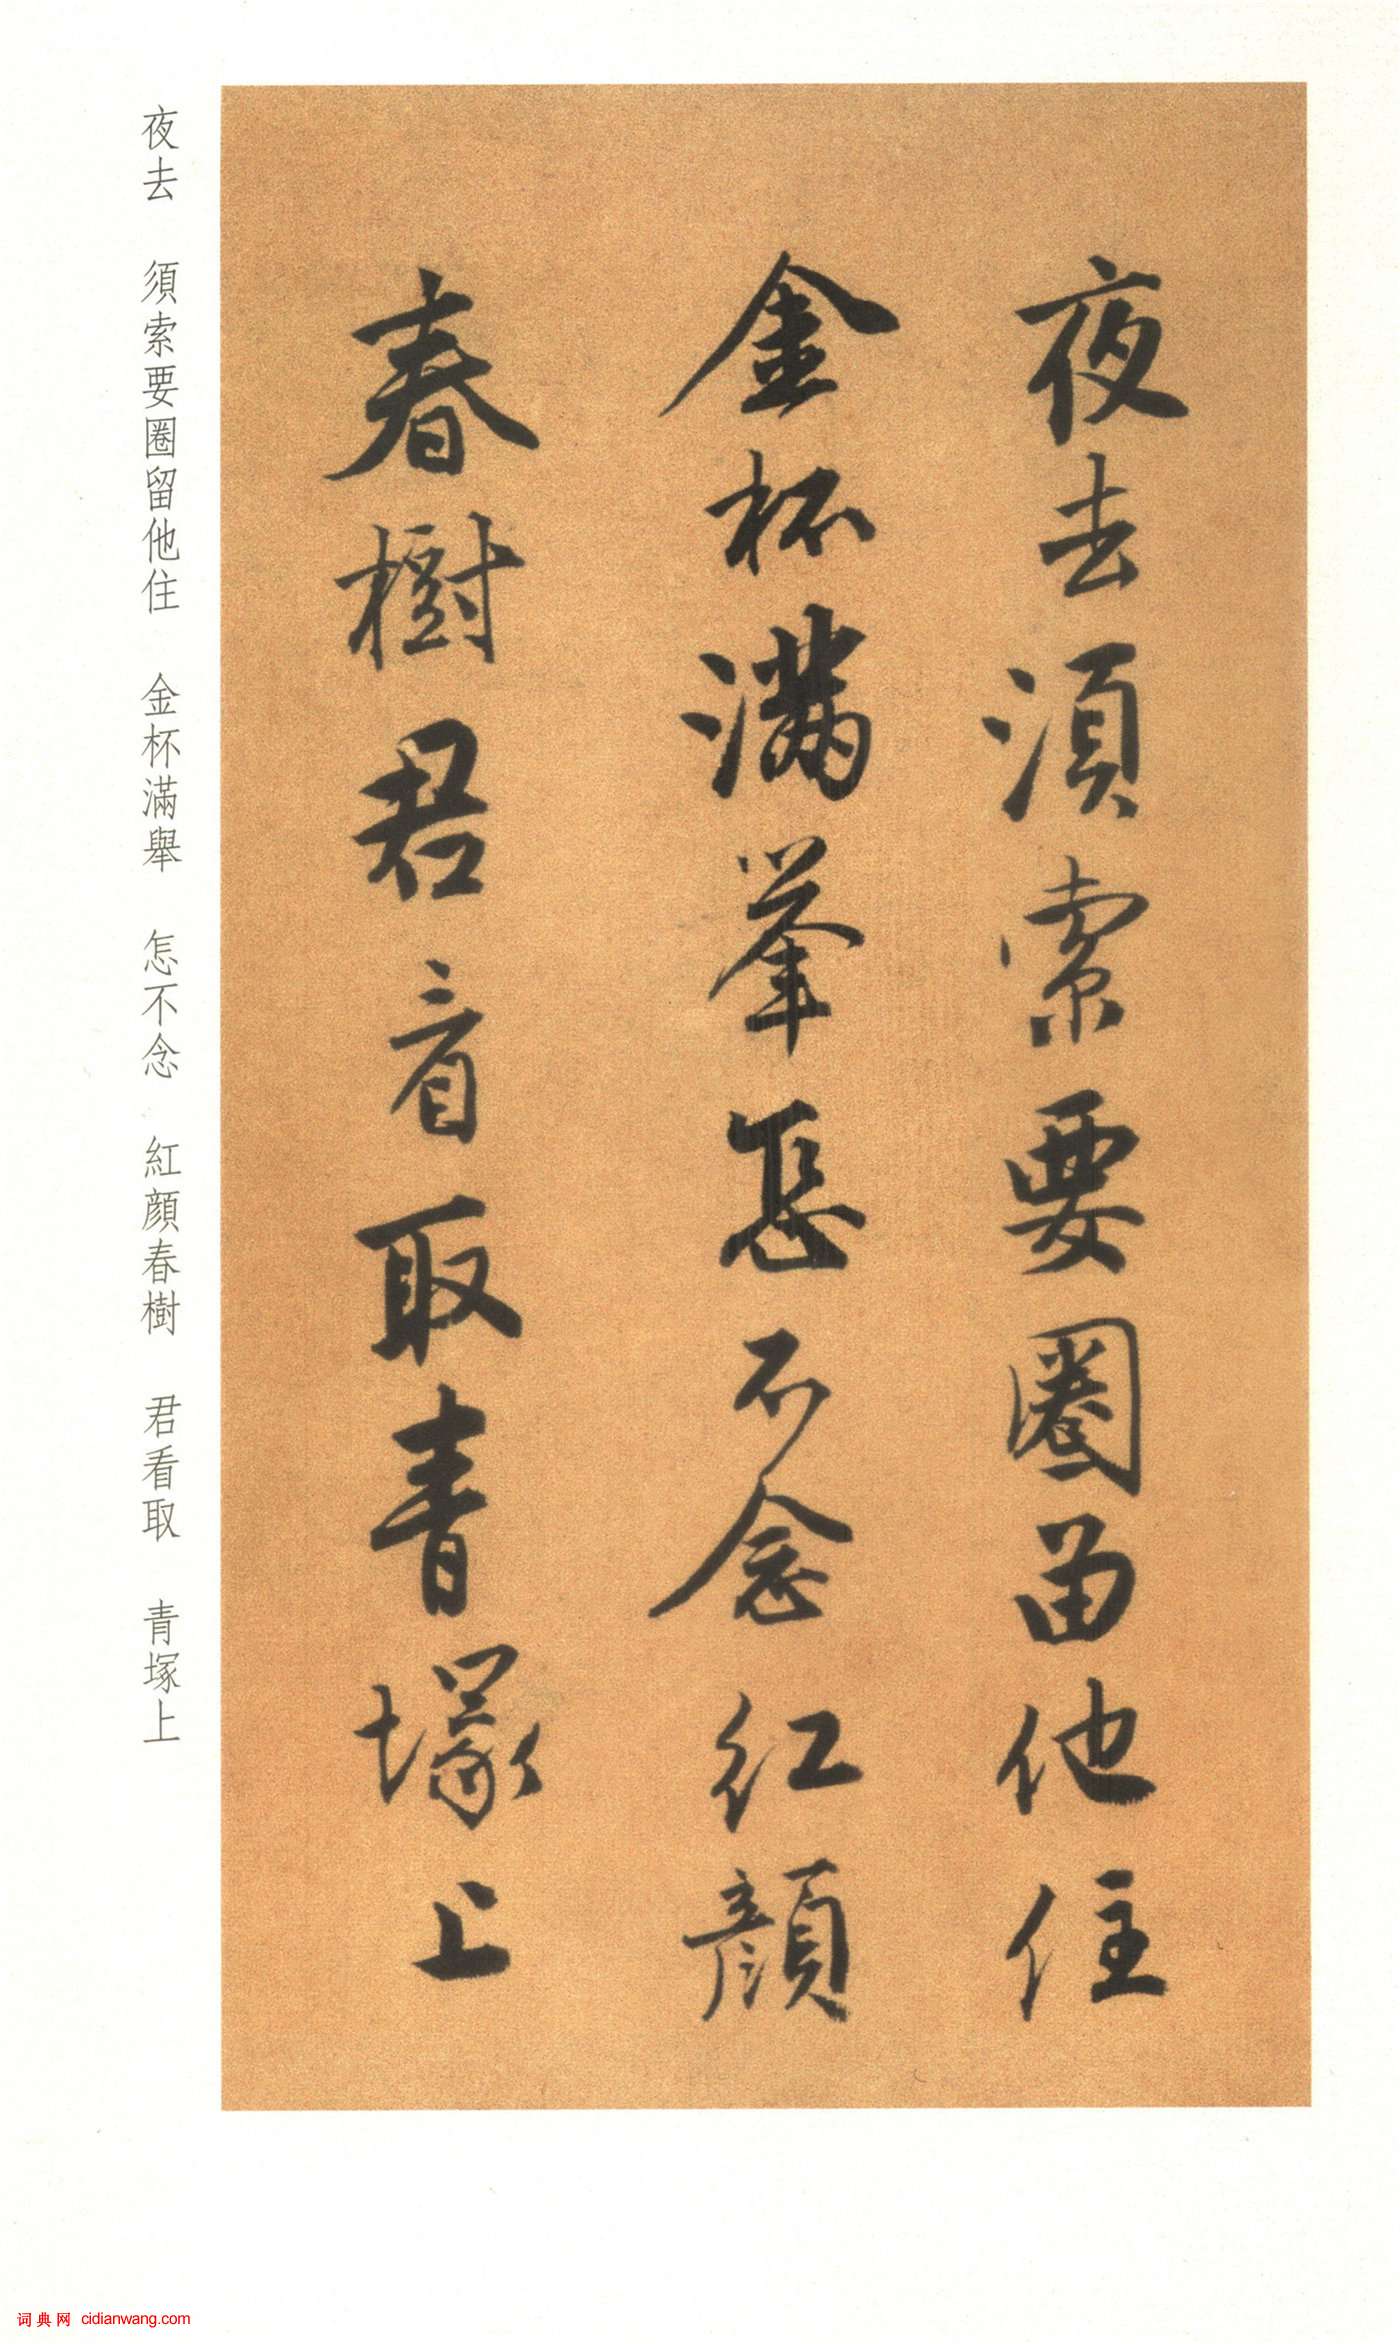 夜去須索要圈留他住
金杯滿舉怎不念紅顏
春樹君看取青塚上
夜去　須索要圈留他住　金杯滿舉　怎不念　紅顏春樹　君看取　青塚上
词典网 cidianwang.com